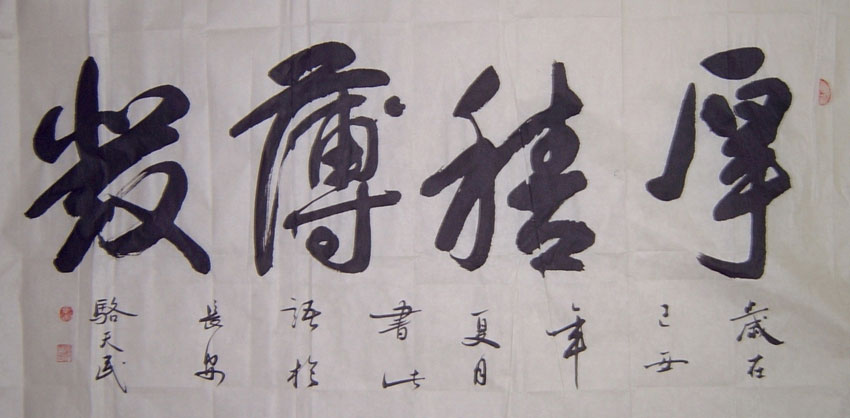 厚積薄發
歲在
己丑
年
夏月
書此
語於
長安
駱天民